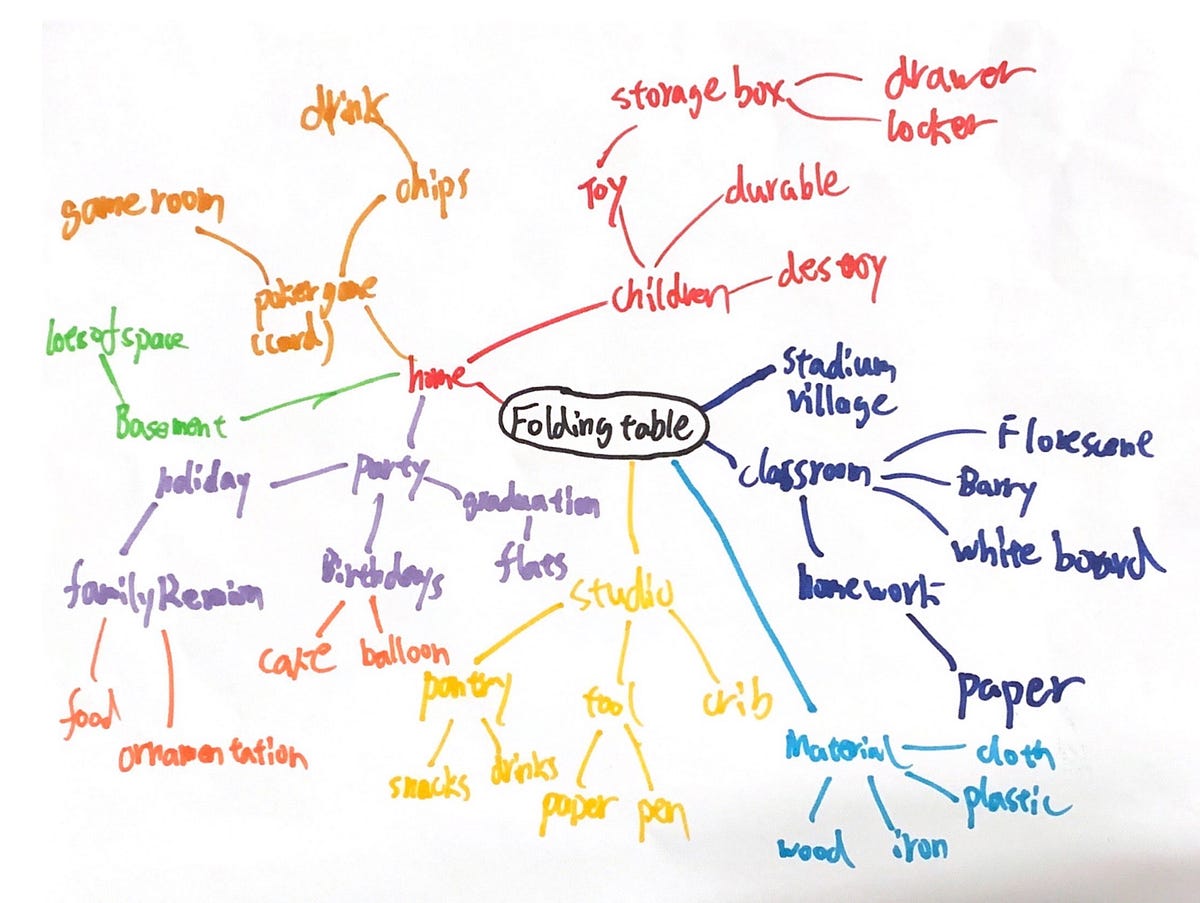 drink
chips
game room
poker game
(card)
storage box
drawer
locker
Toy
durable
children
destroy
lots of space
Basement
home
Folding table
stadium
village
classroom
Barry
white board
homework
paper
party
holiday
graduation
Birthdays
family
cake
balloon
food
ornamentation
studio
pantry
snacks
drinks
tool
paper
pen
crib
Material
cloth
plastic
wood
iron